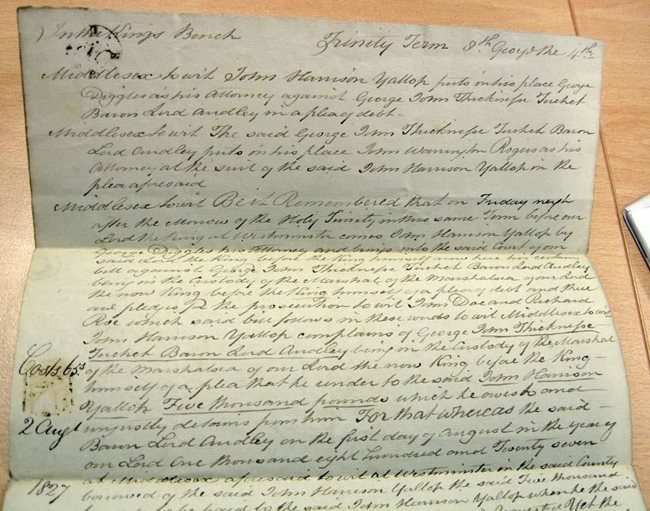 In the Kings Bench Trinity Term 8th George the 4th
Middlesex to wit John Harrison Yallop puts in his place George
Diggles as his Attorney against George John Thicknefse Tuchet
Baron Lord Audley in a plea of debt
Middlesex to wit The said George John Thicknefse Tuchet Baron
Lord Audley puts in his place John Warrington Rogers as his
Attorney at the suit of the said John Harrison Yallop in the
plea aforesaid
Middlesex to wit Be it Remembered that on Friday next
after the Morrow of the Holy Trinity in this same Term before our
Lord the King at Westminster comes John Harrison Yallop by
George Diggles his Attorney and brings into the said Court of our
said Lord the King before the King himself now here his certain
bill against George John Thicknefse Tuchet Baron Lord Audley
being in the custody of the Marshal of the Marshalsea of our Lord
the now King before the King himself of a plea of debt and there
are pledges for the prosecution to wit John Doe and Richard
Roe which said bill follows in these words to wit Middlesex to wit
John Harrison Yallop complains of George John Thicknefse
Tuchet Baron Lord Audley being in the Custody of the Marshal
Costs 65s of the Marshalsea of our Lord the now King before the King
himself of a plea that he render to the said John Harrison
Yallop Five thousand pounds which he owes to and
2 Augt unjustly detains from him For that whereas the said
Baron Lord Audley on the first day of August in the year of
our Lord One thousand eight hundred and Twenty seven
1827 at Middlesex aforesaid to wit at Westminster in the said County
borrowed of the said John Harrison Yallop the said Five thousand
to be paid to the said John Harrison Yallop when he the said
requested Yet the